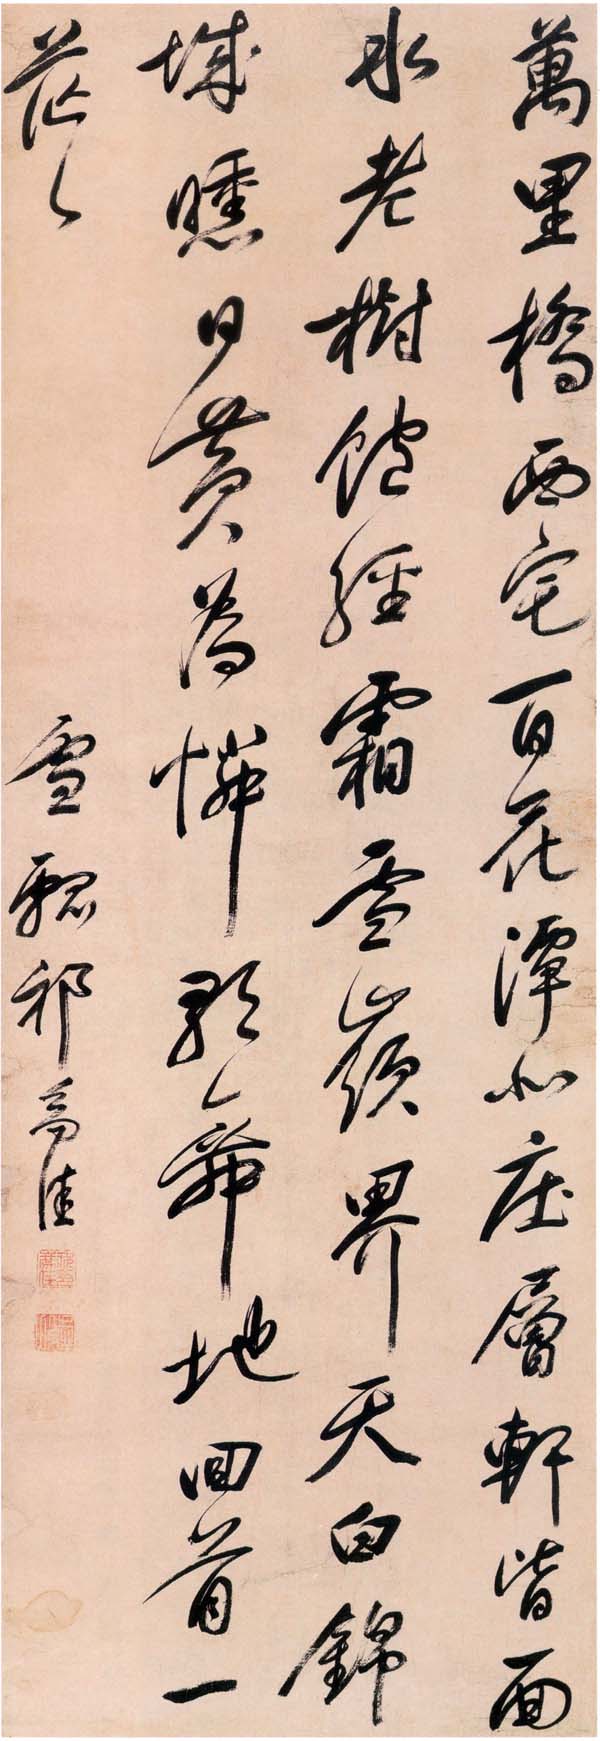 萬里橋西宅百花潭北庄層軒皆面
水老樹飽經霜雪嶺界天白錦
城曛日黃為憐歌舞地回首一
茫々
雪瓢祁豸佳